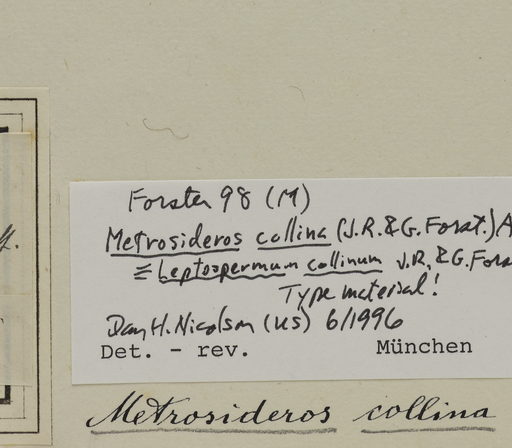 Forster 98 (M)
Metrosideros collina (J.R. & G. Forst.) A
≡ Leptospermum collinum J.R. & G. Fors
Type material!
Dan H. Nicolson (US) 6/1996
Det. - rev. München
Metrosideros collina